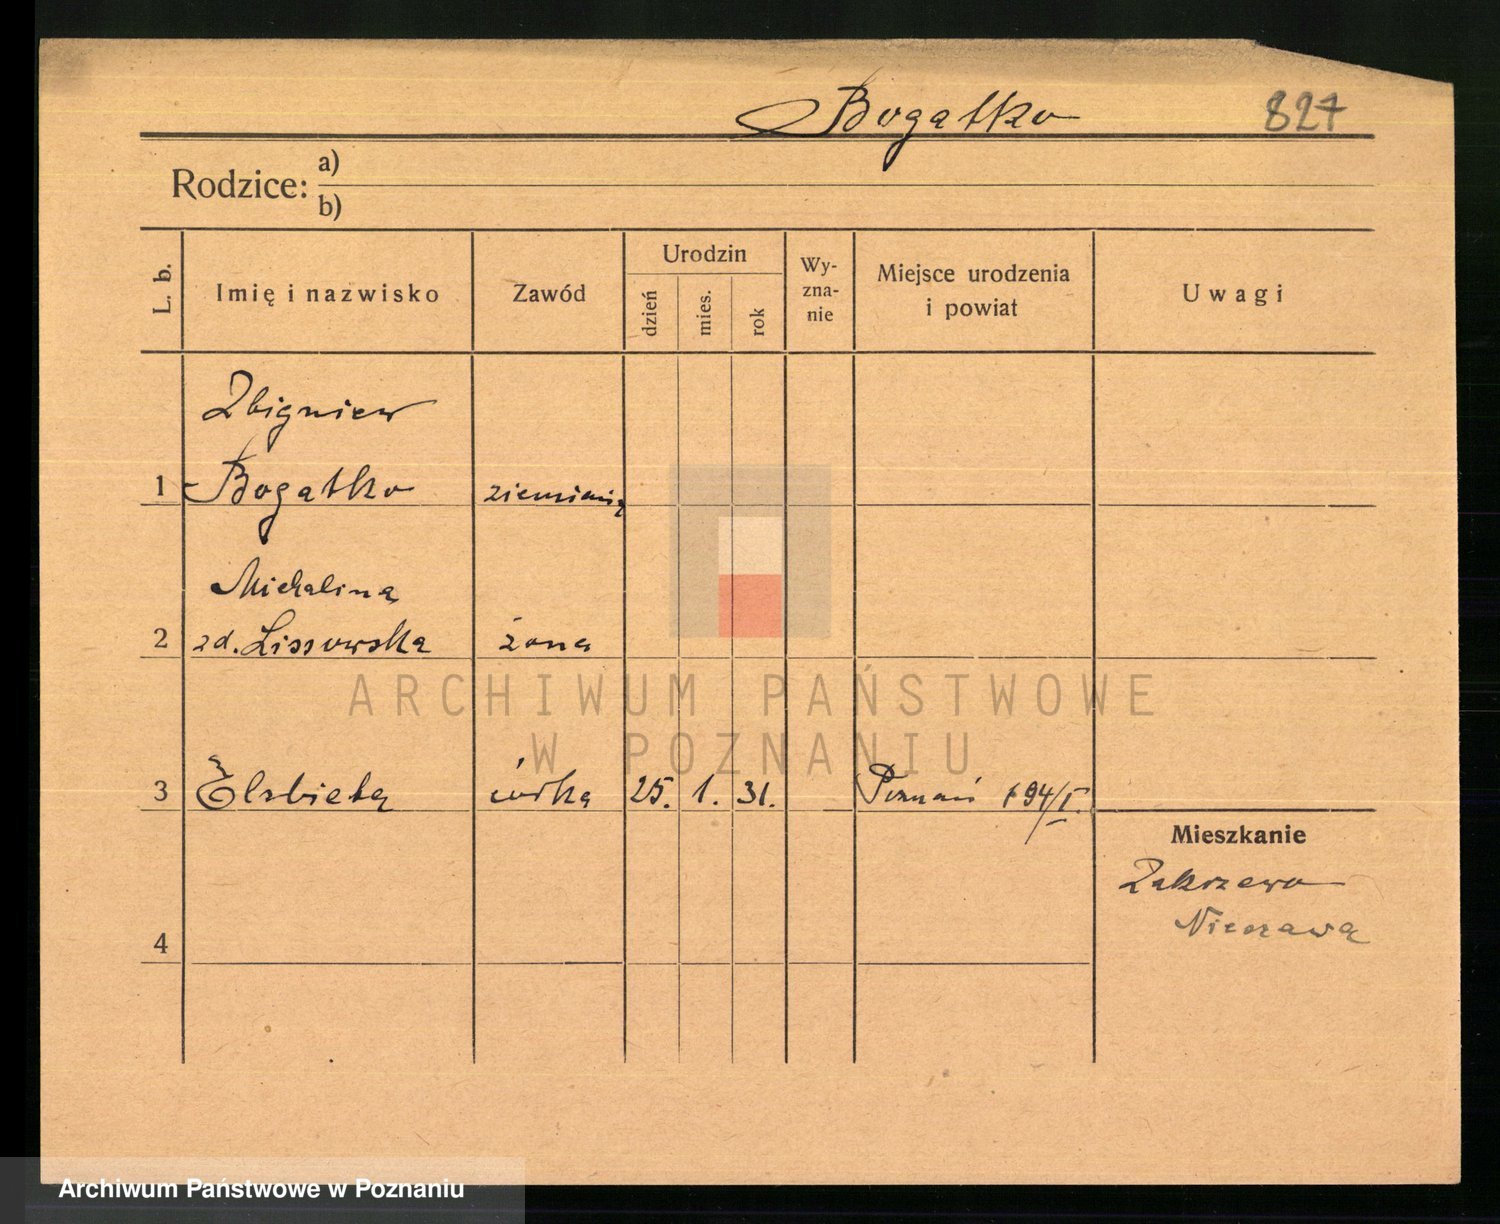 Bogatko 827
Rodzice: a)
b)
L. b. Imię i nazwisko Zawód Urodzin dzień mies. rok Wy-zna-nie Miejsce urodzenia i powiat Uwagi
Zbigniew
1 Bogatko ziemianin
Michalina
2 zd. Lissowska żona
3 Elżbieta córka 25. 1. 31. Poznań 194/I.
Mieszkanie
Zakrzewo
Nieszawa
4
ARCHIWUM PAŃSTWOWE
W POZNANIU
Archiwum Państwowe w Poznaniu